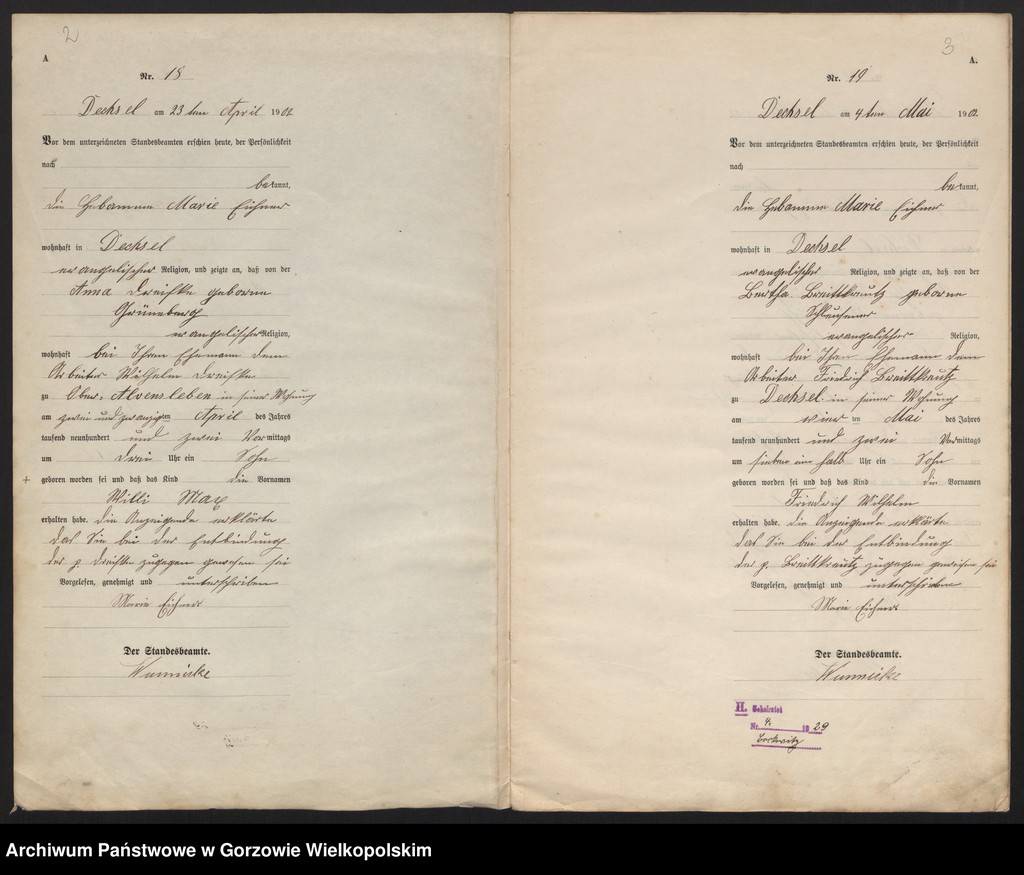 2
A
Nr. 18
Dechsel am 23 ten April 1902
Vor dem unterzeichneten Standesbeamten erschien heute, der Persönlichkeit
nach
bekannt,
die Hebamme Marie Eichner
wohnhaft in Dechsel
evangelischer Religion, und zeigte an, daß von der
Anna Dreifke geborne
Grüneberg
evangelischer Religion,
wohnhaft bei Ihren Ehemann dem
Arbeiter Wilhelm Dreifke
zu Ober-Alvensleben in seiner Wohnung
am zwei und zwanzigten April des Jahres
tausend neunhundert und zwei Vormittags
um drei Uhr ein Sohn
geboren worden sei und daß das Kind die Vornamen
Willi Max
erhalten habe. die Anzeigende erklärte
das Sie bei der Entbindung
der p. Dreifke zugegen gewesen sei
Vorgelesen, genehmigt und unterschrieben
Marie Eichner
Der Standesbeamte.
Wunnicke
3
A.
Nr. 19
Dechsel am 4 ten Mai 1902
Vor dem unterzeichneten Standesbeamten erschien heute, der Persönlichkeit
nach
bekannt,
die Hebamme Marie Eichner
wohnhaft in Dechsel
evangelischer Religion, und zeigte an, daß von der
Bertha Breittkreutz geborne
Schleusener
evangelischer Religion,
wohnhaft bei Ihren Ehemann dem
Arbeiter Friedrich Breittkreutz
zu Dechsel in seiner Wohnung
am vier ten Mai des Jahres
tausend neunhundert und zwei Vormittags
um sieben ein halb Uhr ein Sohn
geboren worden sei und daß das Kind die Vornamen
Friedrich Wilhelm
erhalten habe. die Anzeigende erklärte
das Sie bei der Entbindung
der p. Breittkreutz zugegen gewesen sei
Vorgelesen, genehmigt und unterschrieben
Marie Eichner
Der Standesbeamte.
Wunnicke
H.
Nr. 4 1929
Archiwum Państwowe w Gorzowie Wielkopolskim